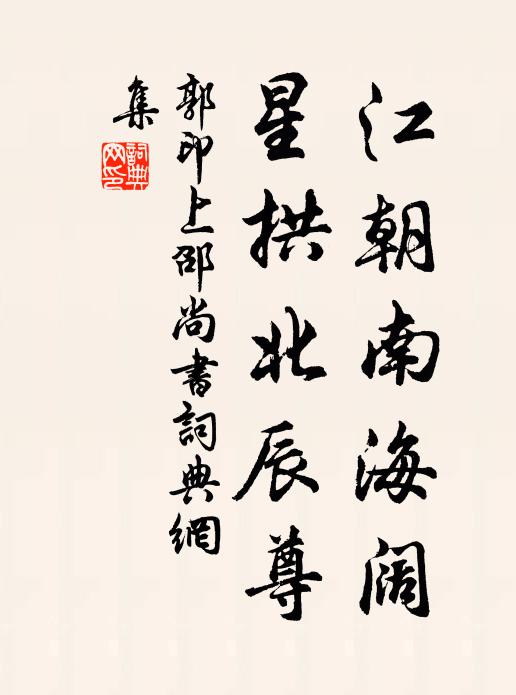 江朝南海阔
星拱北辰尊
郭印上邵尚書詞典網
集
詞典
网印